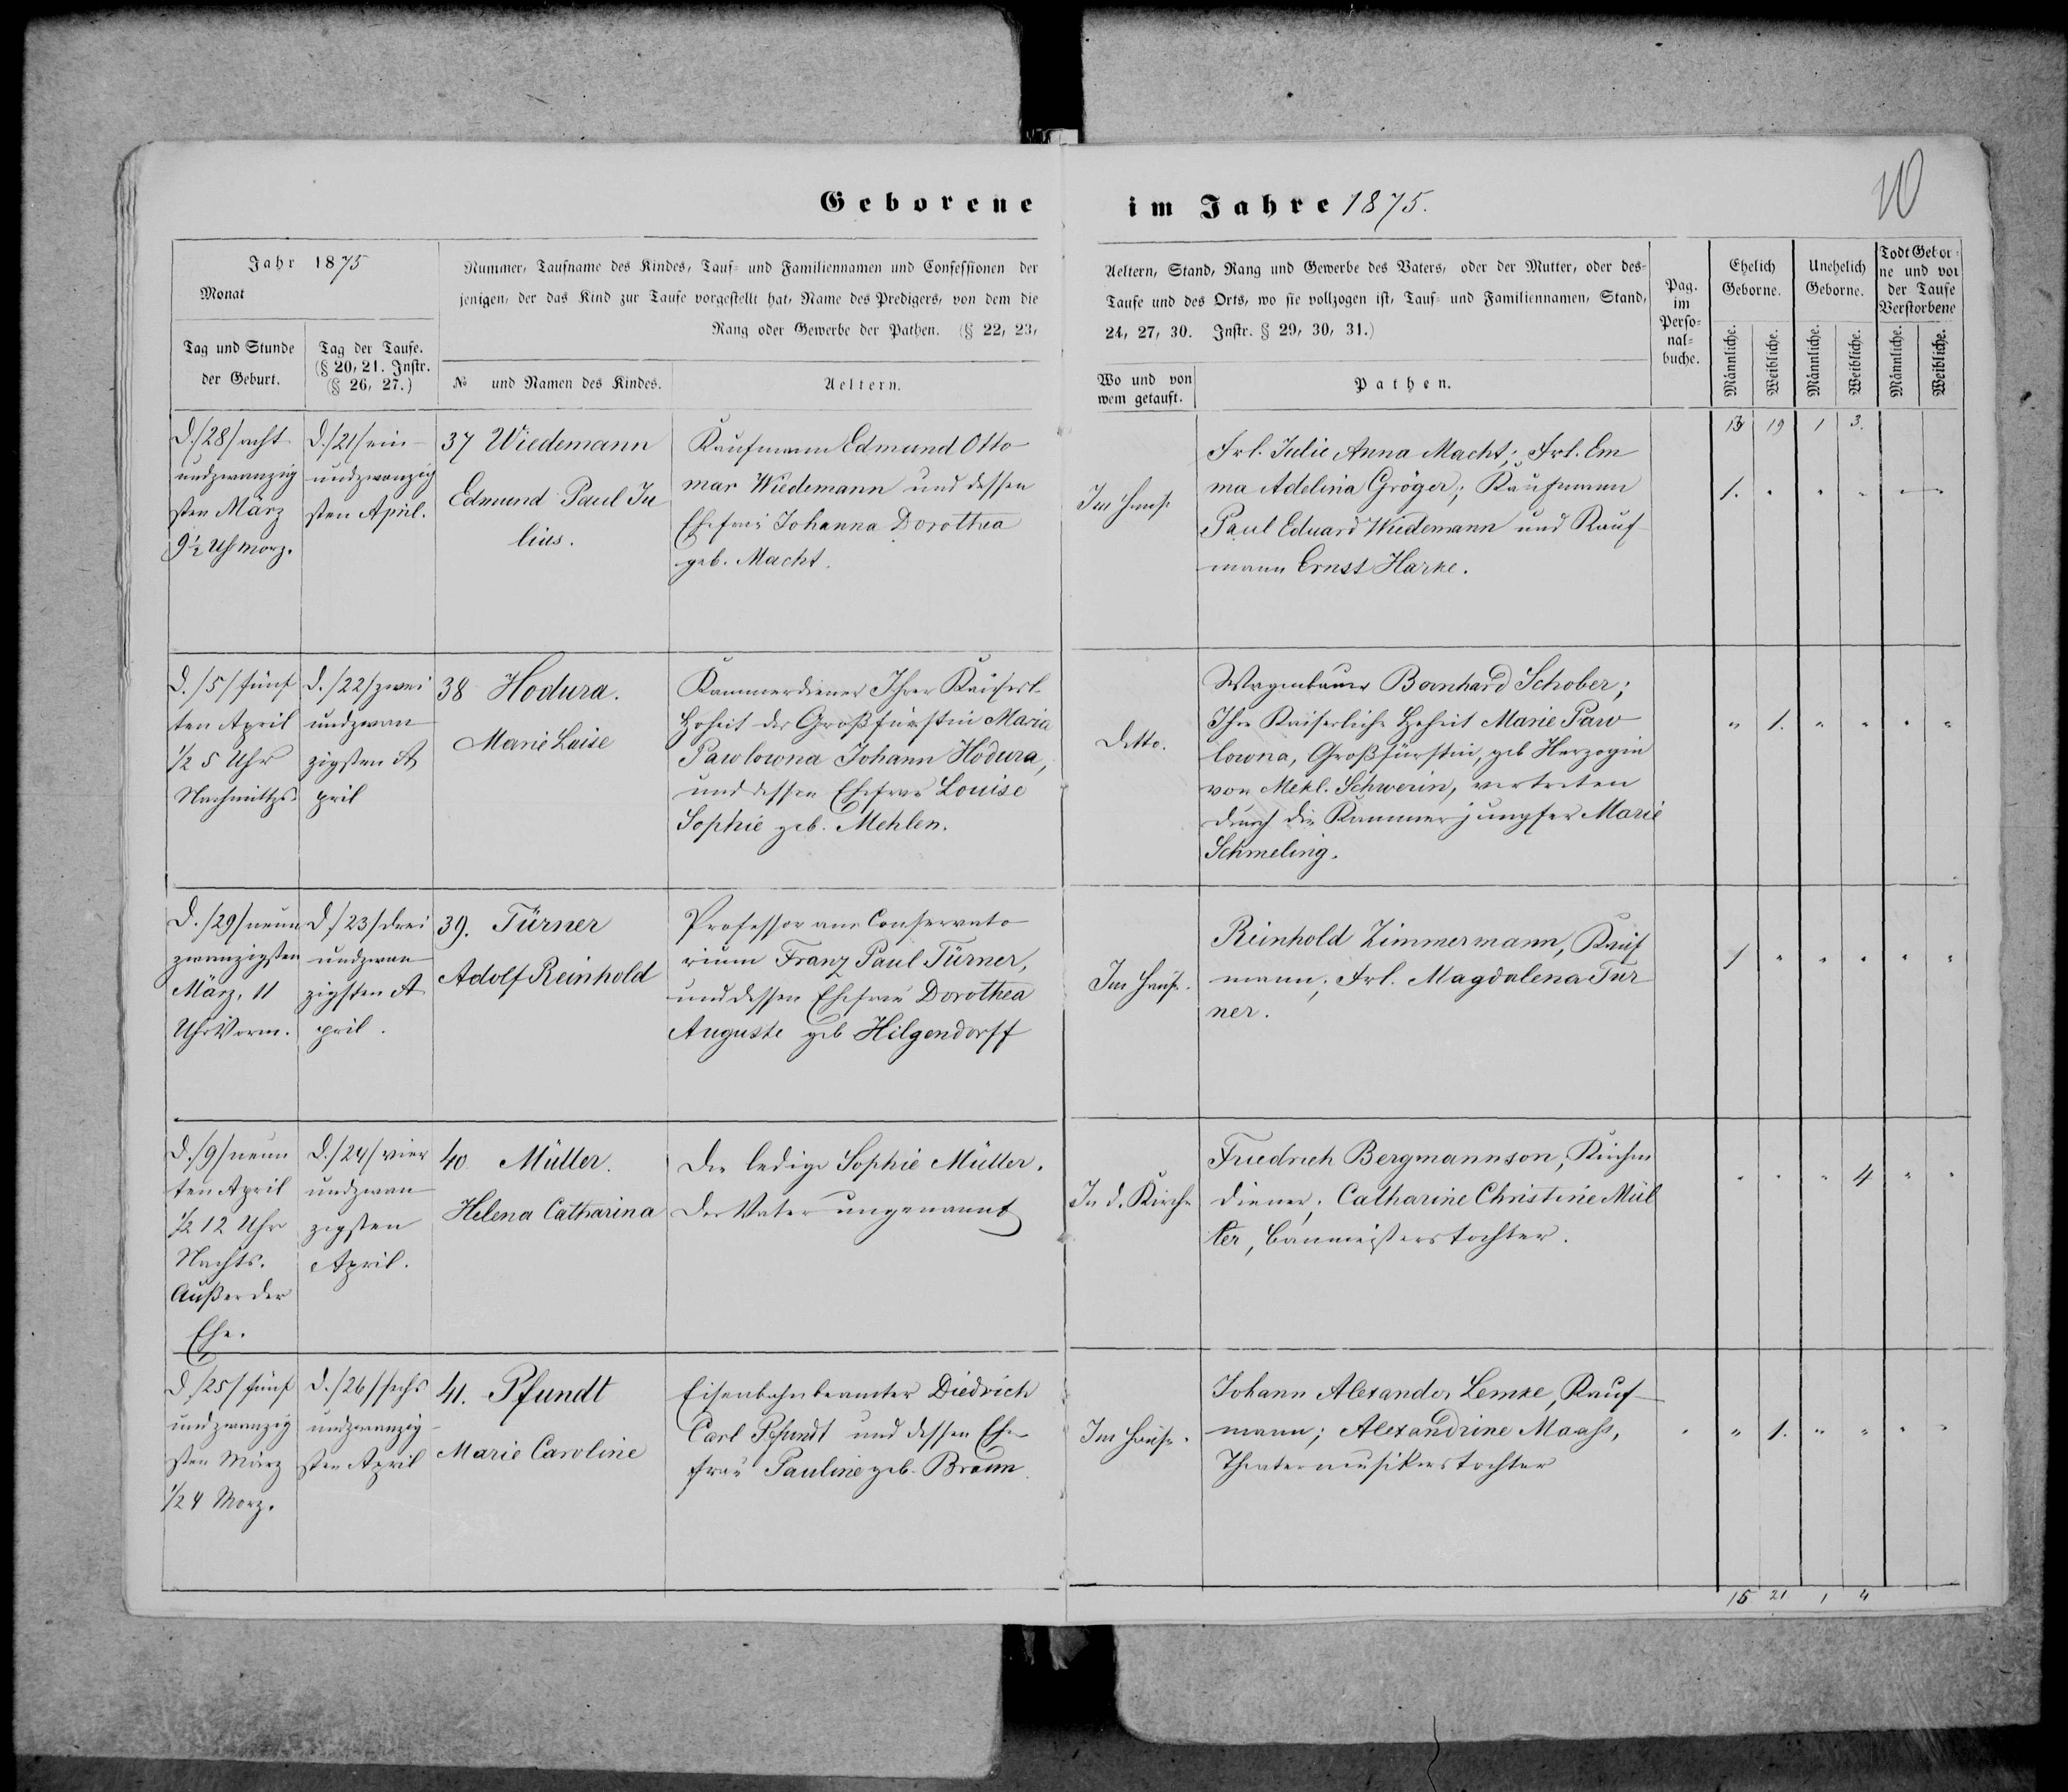 Geborene im Jahre 1875.
10
Jahr 1875
Monat
Tag und Stunde
der Geburt.
Tag der Taufe.
(§ 20, 21. Instr.
(§ 26, 27.)
Nummer, Taufname des Kindes, Tauf- und Familiennamen und Confessionen der
jenigen, der das Kind zur Taufe vorgestellt hat, Name des Predigers, von dem die
Rang oder Gewerbe der Pathen. (§ 22, 23,
№ und Namen des Kindes.
Aeltern.
Aeltern, Stand, Rang und Gewerbe des Vaters, oder der Mutter, oder des-
Taufe und des Orts, wo sie vollzogen ist, Tauf- und Familiennamen, Stand,
24, 27, 30. Instr. § 29, 30, 31.)
Wo und von
wem getauft.
Pathen.
Pag.
im
Perso-
nal-
buche.
Ehelich
Geborne.
Unehelich
Geborne.
Todt Gebor-
ne und vor
der Taufe
Verstorbene
Männliche.
Weibliche.
Männliche.
Weibliche.
Männliche.
Weibliche.
13 19 1 3.
D. /28/ acht
undzwanzig
sten März
9½ Uhr Morg.
D. /21/ ein-
undzwanzig
sten April.
37 Wiedemann
Edmund Paul Ju
lius.
Kaufmann Edmund Otto
mar Wiedemann und dessen
Ehefrau Johanna Dorothea
geb. Macht.
Im Hause
Frl. Julie Anna Macht; Frl. Em
ma Adelina Gröger; Kaufmann
Paul Eduard Wiedemann und Kauf
mann Ernst Harke.
1. " " " " "
D. /5/ fünf
ten April
½ 5 Uhr
Nachmittgs.
D. /22/ zwei
undzwan
zigsten A
pril
38 Hodura.
Marie Luise
Kammerdiener Ihrer Kaiserl.
Hoheit der Großfürstin Maria
Pawlowna Johann Hodura,
und dessen Ehefrau Louise
Sophie geb. Mehlen.
Detto.
Wagenbauer Bernhard Schober;
Ihre Kaiserliche Hoheit Marie Paw
lowna, Großfürstin, geb Herzogin
von Mekl. Schwerin, vertreten
durch die Kammerjungfer Marie
Schmeling.
" 1. " " " "
D. /29/ neun
zwanzigsten
März, 11
Uhr Vorm.
D /23/ drei
undzwan
zigsten A
pril.
39. Türner
Adolf Reinhold
Professor am Conservato
rium Franz Paul Türner,
und dessen Ehefrau Dorothea
Auguste geb Hilgendorff
Im Hause.
Reinhold Zimmermann, Kauf
mann; Frl. Magdalena Tür
ner.
1 " " " " "
D. /9/ neun
ten April
½ 12 Uhr
Nachts.
Außer der
Ehe.
D. /24/ vier
undzwan
zigsten
April.
40 Müller.
Helena Catharina
Die ledige Sophie Müller.
Der Vater ungenannt
In d. Kirche
Friedrich Bergmannson, Kirchen
diener; Catharine Christine Mül
ler, Baumeisterstochter.
" " " 4 " "
D /25/ fünf
undzwanzig
sten März
½ 4 Morg.
D. /26/ sechs
undzwanzig-
sten April
41. Pfundt
Marie Caroline
Eisenbahnbeamter Diedrich
Carl Pfundt und dessen Ehe-
frau Pauline geb. Braun.
Im Hause.
Johann Alexander Lemke, Kauf-
mann; Alexandrine Maahs,
Theatermusikerstochter
" 1. " " " "
15 21 1 4